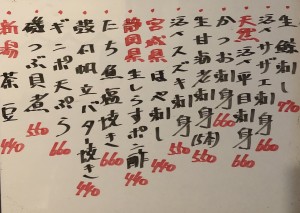 生鯵刺し 770
活サザエ刺し 660
天然活平目刺身 660
かつお刺身 660
生甘海老刺身(5本) 550
活スズキ刺身 550
宮城県ほや刺し 440
静岡県生しらすポン酢 440
たち魚塩焼き 660
殻付帆立バター焼き 440
ギンポ天ぷら 660
磯つぶ貝煮 550
新潟茶豆 440